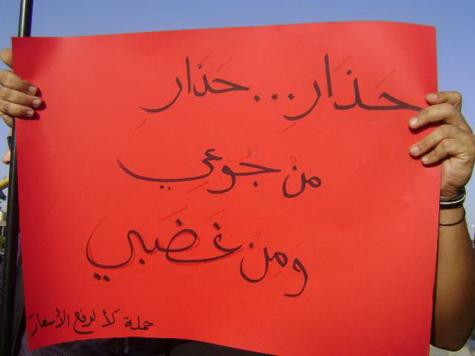 حَذَارِ... حَذَارِ
مِنْ جُوعِي
وَمِنْ غَضَبي
حملة لا لرفع الأسعار